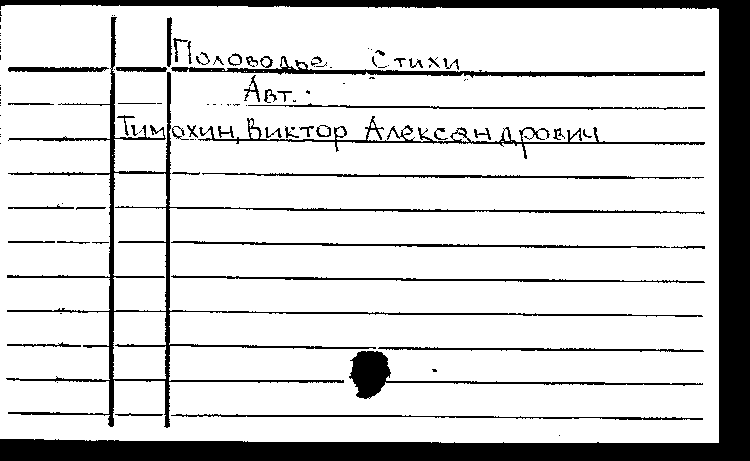 Половодье. Стихи
Авт.:
Тимохин, Виктор Александрович